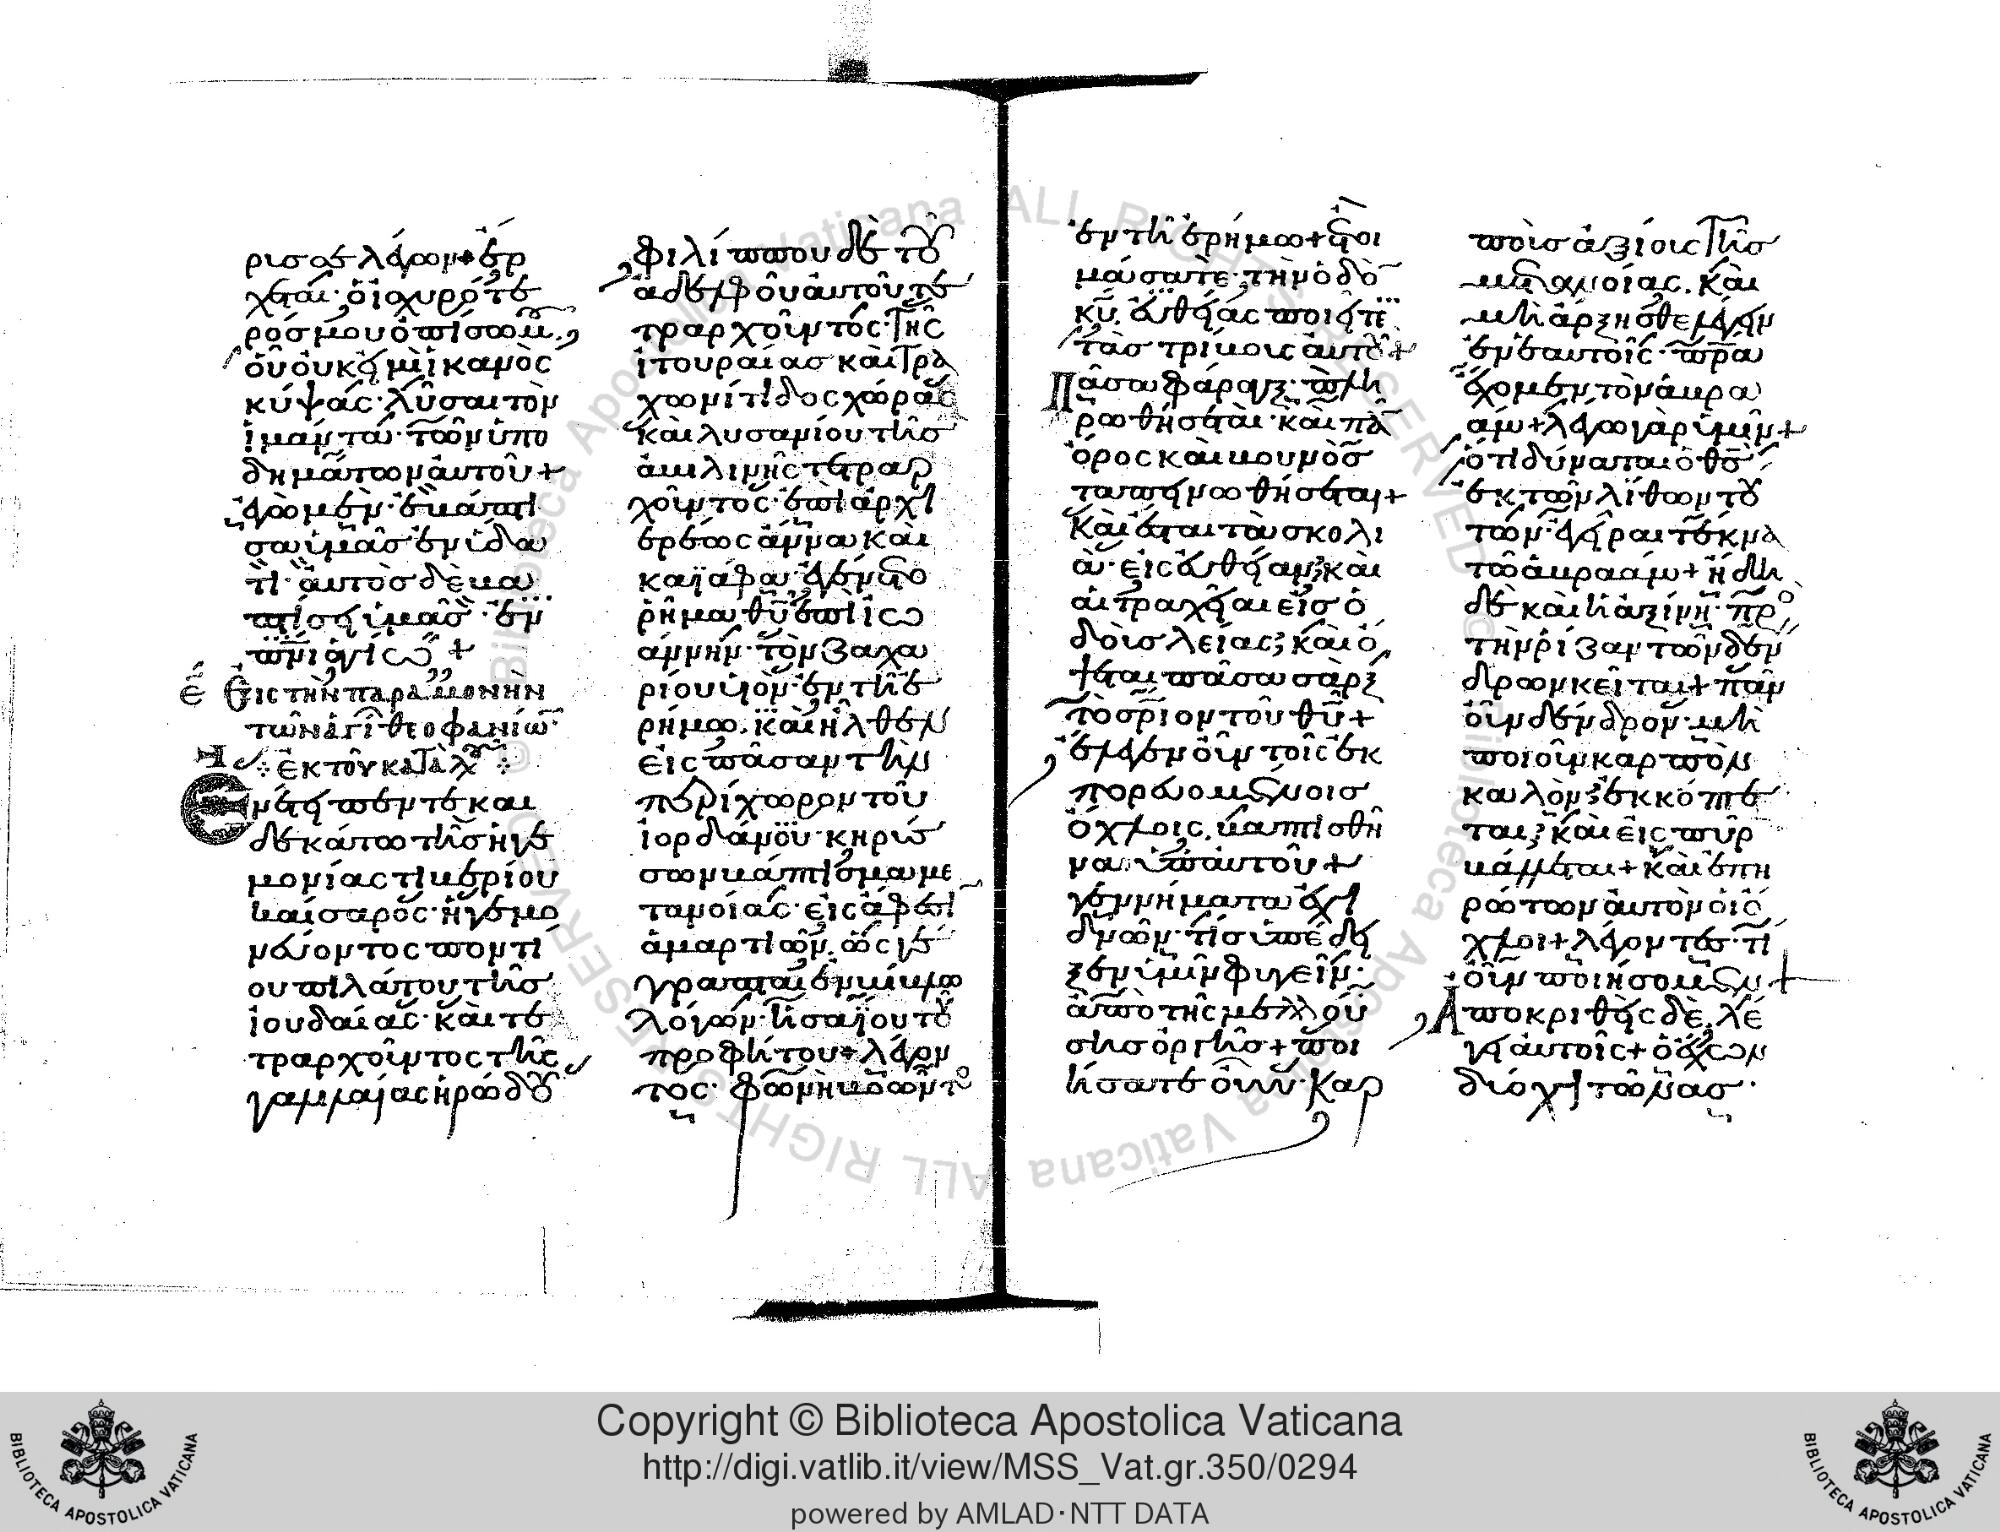 ρισαι λέγων + ἔρ
χεται· ὁ ἰσχυρότε
ρός μου ὀπίσω μ
οὗ οὐκ εἰμὶ ἱκανὸς
κύψας· λῦσαι τὸν
ἱμάντα· τῶν ὑπο
δημάτων αὐτοῦ +
ἐγὼ μὲν· ἐβάπτι
σα ὑμᾶς ἐν ὕδα
τι· αὐτὸς δὲ βα
πτίσει ὑμᾶς· ἐν
πνι ἁγίω +
Εἰς τὴν παραμονὴν
τῶν ἁγί θεοφανίω
ἐκ τοῦ κατὰ
Ἐν ἔτει πεντεκαι
δεκάτω τῆς ἡγε
μονίας τιβερίου
καίσαρος· ἡγεμο
νεύοντος ποντί
ου πιλάτου τῆς
ἰουδαίας· καὶ τε
τραρχοῦντος τῆς
γαλιλαίας ἡρώδου
φιλίππου δὲ τοῦ
ἀδελφοῦ αὐτοῦ τε
τραρχοῦντος· τῆς
ἰτουραίας καὶ τρα
χωνίτιδος χώρας
καὶ λυσανίου τῆς
ἀβιλινῆς τετραρ
χοῦντος· ἐπὶ ἀρχι
ερέως ἄννα καὶ
καϊάφα· ἐγένετο
ῥῆμα θυ ἐπὶ ἰω
άννην· τὸν ζαχα
ρίου υἱὸν· ἐν τῆ ἐ
ρήμω. καὶ ἦλθεν
εἰς πᾶσαν τὴν
περίχωρον τοῦ
ἰορδάνου· κηρύσ
σων βάπτισμα με
τανοίας· εἰς ἄφεσι
ἁμαρτιῶν. ὡς γέ
γραπται ἐν βίβλω
λόγων· ἡσαΐου τοῦ
προφήτου + λέγον
τος· φωνὴ βοῶντο
ἐν τῆ ἐρήμω + ἑτοι
μάσατε· τὴν ὁδὸ
κυ. εὐθείας ποιεῖτε
τὰς τρίβους αὐτοῦ +
Πᾶσα φάραγξ· πλη
ρωθήσεται· καὶ πᾶ
ὄρος καὶ βουνὸς
ταπεινωθήσεται +
καὶ ἔσται τὰ σκολι
ὰ· εἰς εὐθείαν· καὶ
αἱ τραχεῖαι εἰς ὁ
δοὺς λείας· καὶ ὄ
ψεται πᾶσα σὰρξ
τὸ σριον τοῦ θυ +
ἔλεγεν οὖν τοῖς ἐκ
πορευομένοις
ὄχλοις. βαπτισθῆ
ναι ὑπ αὐτοῦ +
γεννήματα ἐχι
δνῶν· τίς ὑπέδει
ξεν ὑμῖν φυγεῖν·
ἀπὸ τῆς μελλού
σης ὀργῆς + ποι
ήσατε οὖν· καρ
ποὺς ἀξίους τῆς
μετανοίας. καὶ
μὴ ἄρξησθε λέγειν
ἐν ἑαυτοῖς· πρα
ἔχομεν τὸν ἁβρα
άμ + λέγω γὰρ ὑμῖν +
ὅτι δύναται ὁ θς
ἐκ τῶν λίθων τού
των· ἐγεῖραι τέκνα
τῶ ἁβραάμ + ἤδη
δὲ καὶ ἡ ἀξίνη· πρὸ
τὴν ῥίζαν τῶν δέν
δρων κεῖται + πᾶν
οὖν δένδρον· μὴ
ποιοῦν καρπὸν
καλὸν· ἐκκόπτε
ται· καὶ εἰς πῦρ
βάλλεται + καὶ ἐπη
ρώτων αὐτὸν οἱ ὄ
χλοι + λέγοντες· τί
οὖν ποιήσομεν +
Ἀποκριθεὶς δὲ λέ
γει αὐτοῖς + ὁ ἔχων
δύο χιτῶνας·
Copyright © Biblioteca Apostolica Vaticana
http://digi.vatlib.it/view/MSS_Vat.gr.350/0294
powered by AMLAD·NTT DATA
BIBLIOTECA APOSTOLICA VATICANA
BIBLIOTECA APOSTOLICA VATICANA